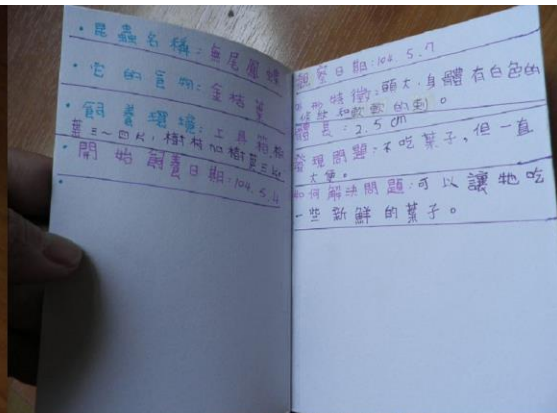 ·昆蟲名稱:無尾鳳蝶
·它的食物:金桔葉
·飼養環境:工具箱放
葉三~四片,樹枝加樹葉三
開始飼養日期:104.5.4
·
觀察日期:104.5.7
外形特徵:頭大、身體有白色的
條紋和軟軟的刺。
體長:2.5cm
發現問題:不吃葉子,但一直
大便。
如何解決問題:可以讓牠吃
一些新鮮的葉子。